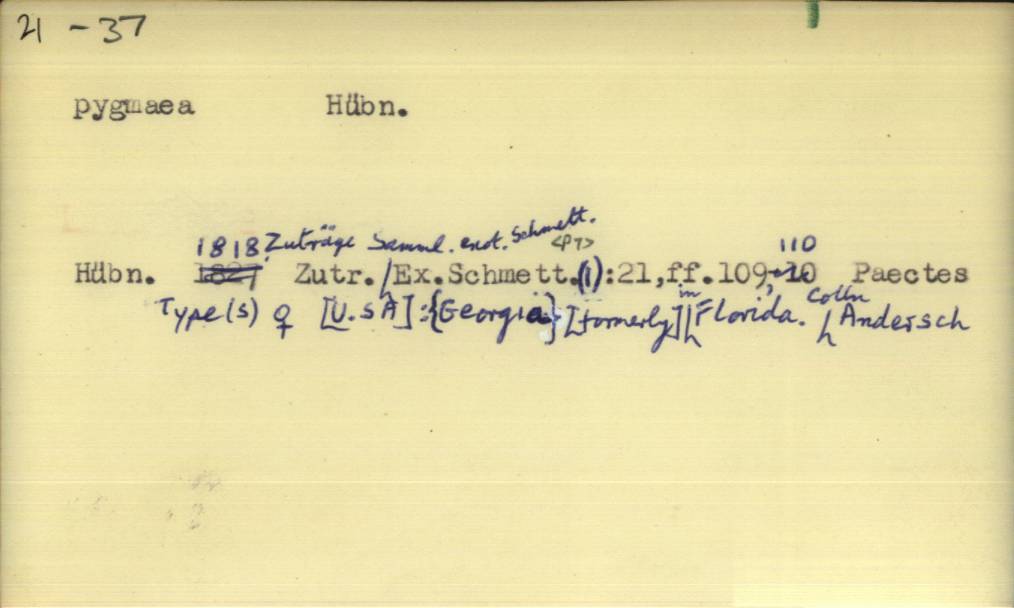 21 - 37
pygmaea Hübn.
1818, Zuträge Samml. exot. Schmett. <Pt> 110
Hübn. 1827 Zutr./Ex.Schmett.(1):21,ff.109,-10 Paectes
Type(s) ♀ [U.SA]:{Georgia} [formerly] in Florida. Colln Andersch